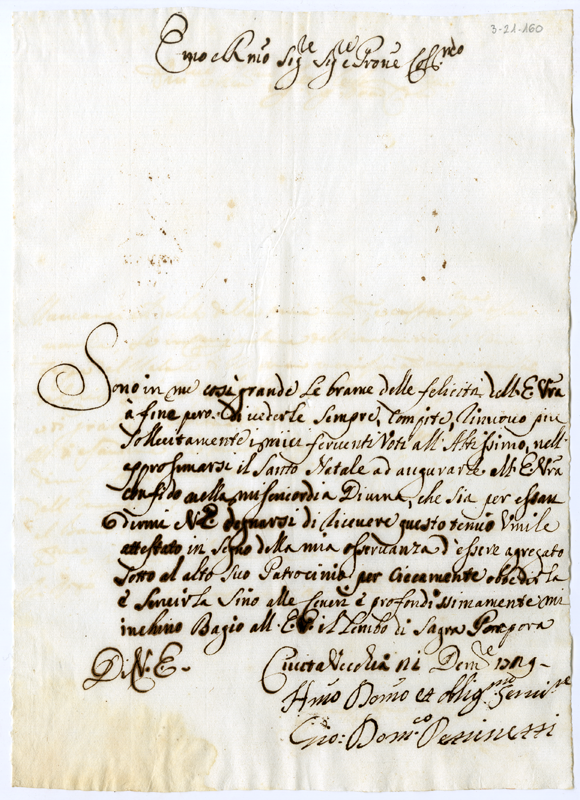 3-21-160
Emo e Rmo Sigre Sigre e Prone Coll.mo
Sono in me così grande le brame delle felicità dell E Vra
à fine però di vederle sempre compite, rinuovo più
sollecitamente i miei ferventi Voti all'Altissimo, nell'
approssimarsi il Santo Natale ad augurarle all E Vra
confido nella misericordia Divina, che sia per esau
dirmi e V E degnarsi di ricevere questo tenuo Umile
attestato in segno della mia osservanza d'essere agregato
sotto al alto suo Patrocinio per ciecamente obbedirla
e Servirla Sino alle ceneri e profondissimamente mi
inchino Bagio all E.V. il Lembo di Sagra Porpora
Di V. E.
Civita Vecchia Dembre
Hmo Domo et Obligmo Servire
Gio: Domco